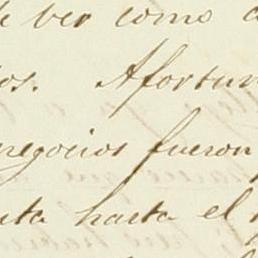 de ver como
os. Afortun
negocios fueron
nta hasta el